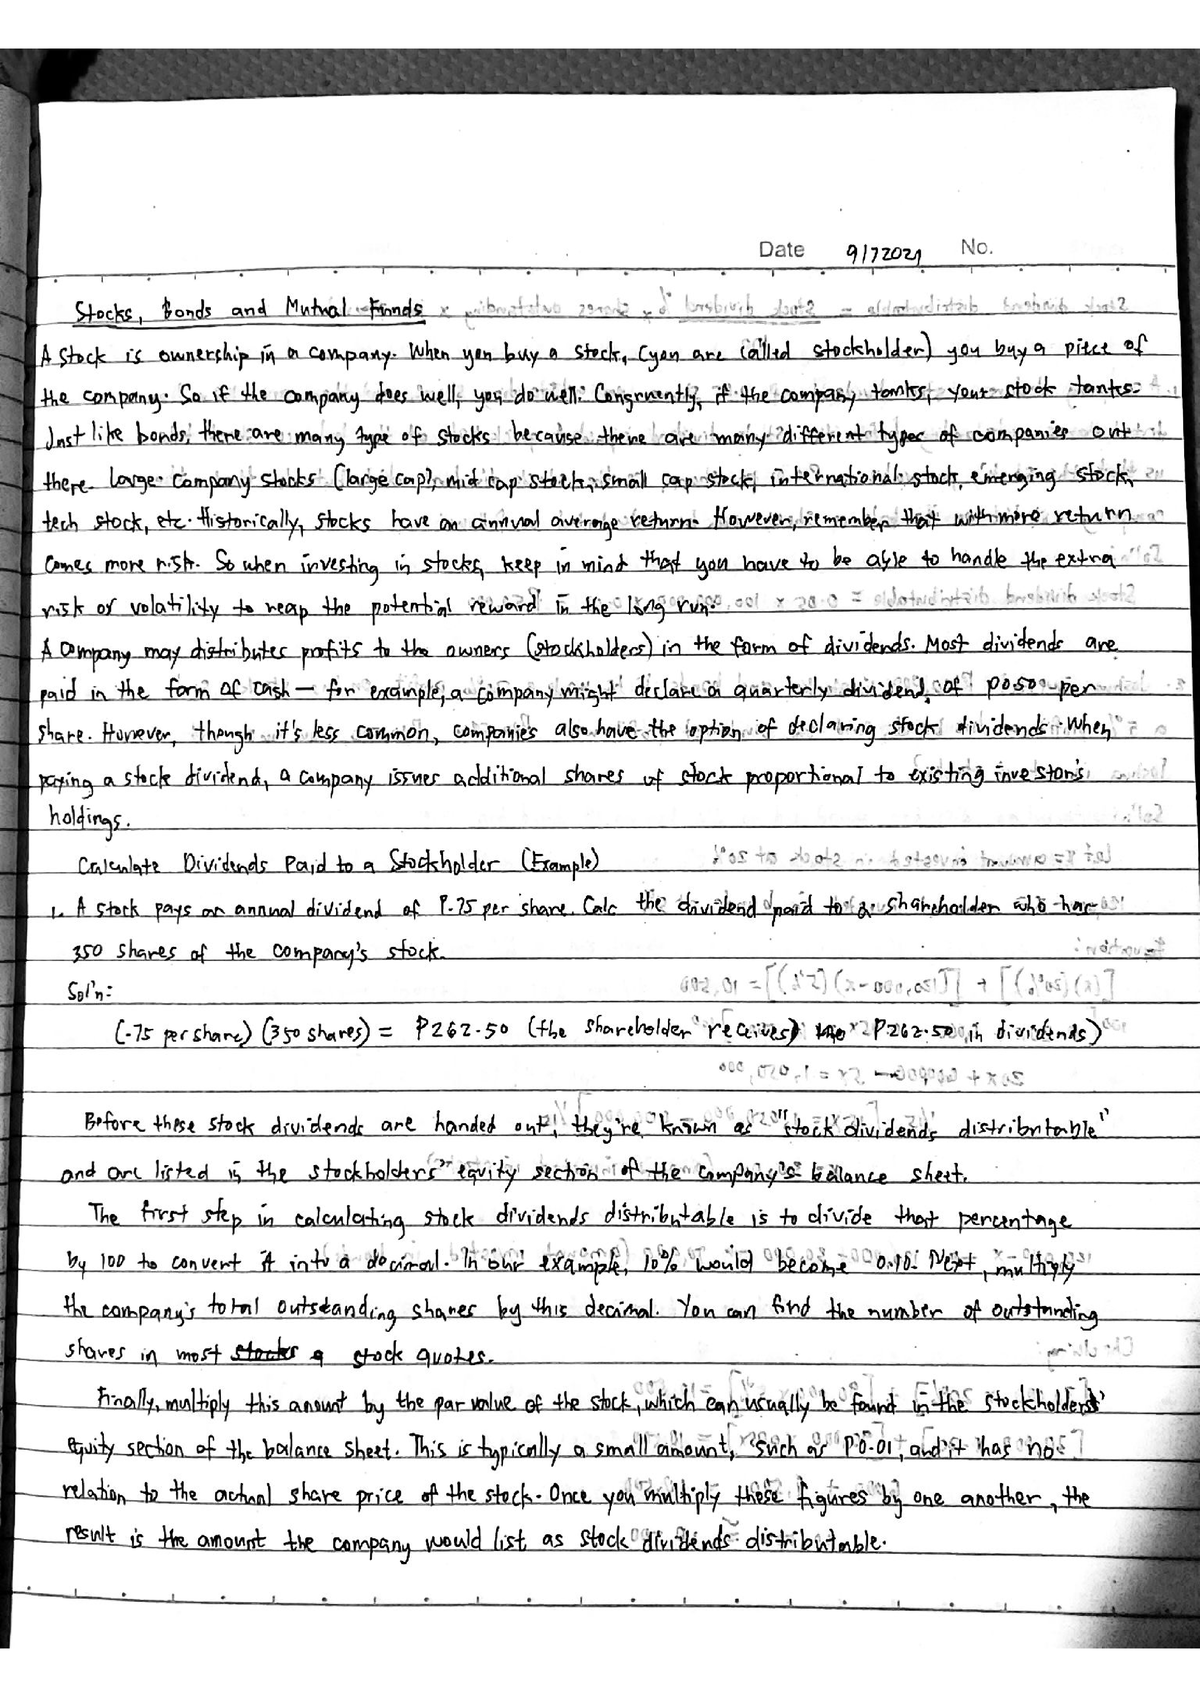 Date 9/72021 No.
Stocks, Bonds and Mutual Funds
A Stock is ownership in a company. When you buy a stock, (you are called stockholder) you buy a piece of
the company. So if the company does well, you do well. Congruently, if the company tanks, your stock tanks.
Just like bonds, there are many type of stocks because there are many different types of companies out
there. Large Company stocks (large cap), mid cap stock, small cap stock, international stock, emerging stock,
tech stock, etc. Historically, stocks have an annual average return. However, remember that with more return
comes more risk. So when investing in stocks, keep in mind that you have to be able to handle the extra
risk or volatility to reap the potential reward in the long run.
A company may distributes profits to the owners (stockholders) in the form of dividends. Most dividends are
paid in the form of cash — for example, a company might declare a quarterly dividend of P0.50 per
share. However, though it's less common, companies also have the option of declaring stock dividends. When
paying a stock dividend, a company issues additional shares of stock proportional to existing investor's
holdings.
Calculate Dividends Paid to a Stockholder (Example)
1. A stock pays an annual dividend of P.75 per share. Calc the dividend paid to a shareholder who has
350 shares of the company's stock.
Sol'n:
(.75 per share) (350 shares) = ₱262.50 (the shareholder receives) ₱262.50 in dividends)
Before these stock dividends are handed out, they're known as "stock dividends distributable"
and are listed in the stockholders' equity section of the company's balance sheet.
The first step in calculating stock dividends distributable is to divide that percentage
by 100 to convert it into a decimal. In our example, 10% would become 0.10. Next, multiply
the company's total outstanding shares by this decimal. You can find the number of outstanding
shares in most stocks q stock quotes.
Finally, multiply this amount by the par value of the stock, which can usually be found in the stockholders'
equity section of the balance sheet. This is typically a small amount, such as P0.01, and it has no
relation to the actual share price of the stock. Once you multiply these figures by one another, the
result is the amount the company would list as stock dividends distributable.